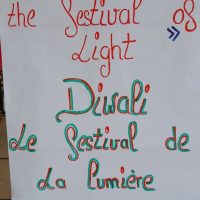 the Festival of
Light
Diwali
Le Festival de
La Lumière